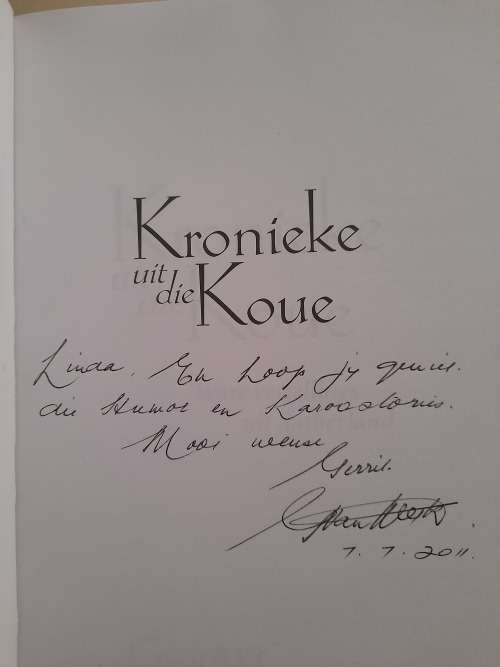 Kronieke
uit die
Koue
Linda, Ek hoop jy geniet
die Humor en Karoostories.
Mooi wense
Gerrit.
7.7.2011.